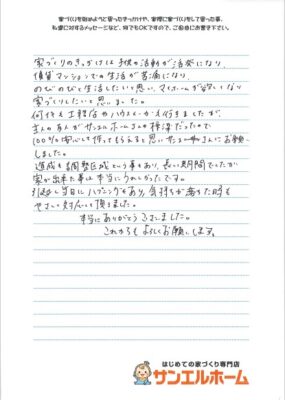 家づくりを始めようと思ったきっかけや、実際に家づくりをして思った事、
私達に対するメッセージなど、何でもOKですので、ご自由にお書き下さい。
家づくりのきっかけは子供の活動が活発になり、
賃貸マンションでの生活が苦痛になり、
のびのびと生活したいと思い、マイホームが欲しくなり
家づくりしたいと思いました。
何件も工務店やハウスメーカーへ行きましたが、
主人の友人がサンエルホームさんの棒津だったので
100%安心して持ってもらえると思いサンエルホームさんにお願い
しました。
造成も調整区域という事もあり、長い期間でしたが
家が出来た事は本当にうれしかったです。
引越し当日にハプニングもあり、気持ちが落ちた時も
やさしく対応して頂きました。
本当にありがとうございました。
これからもよろしくお願いします。
はじめての家づくり専門店
サンエルホーム